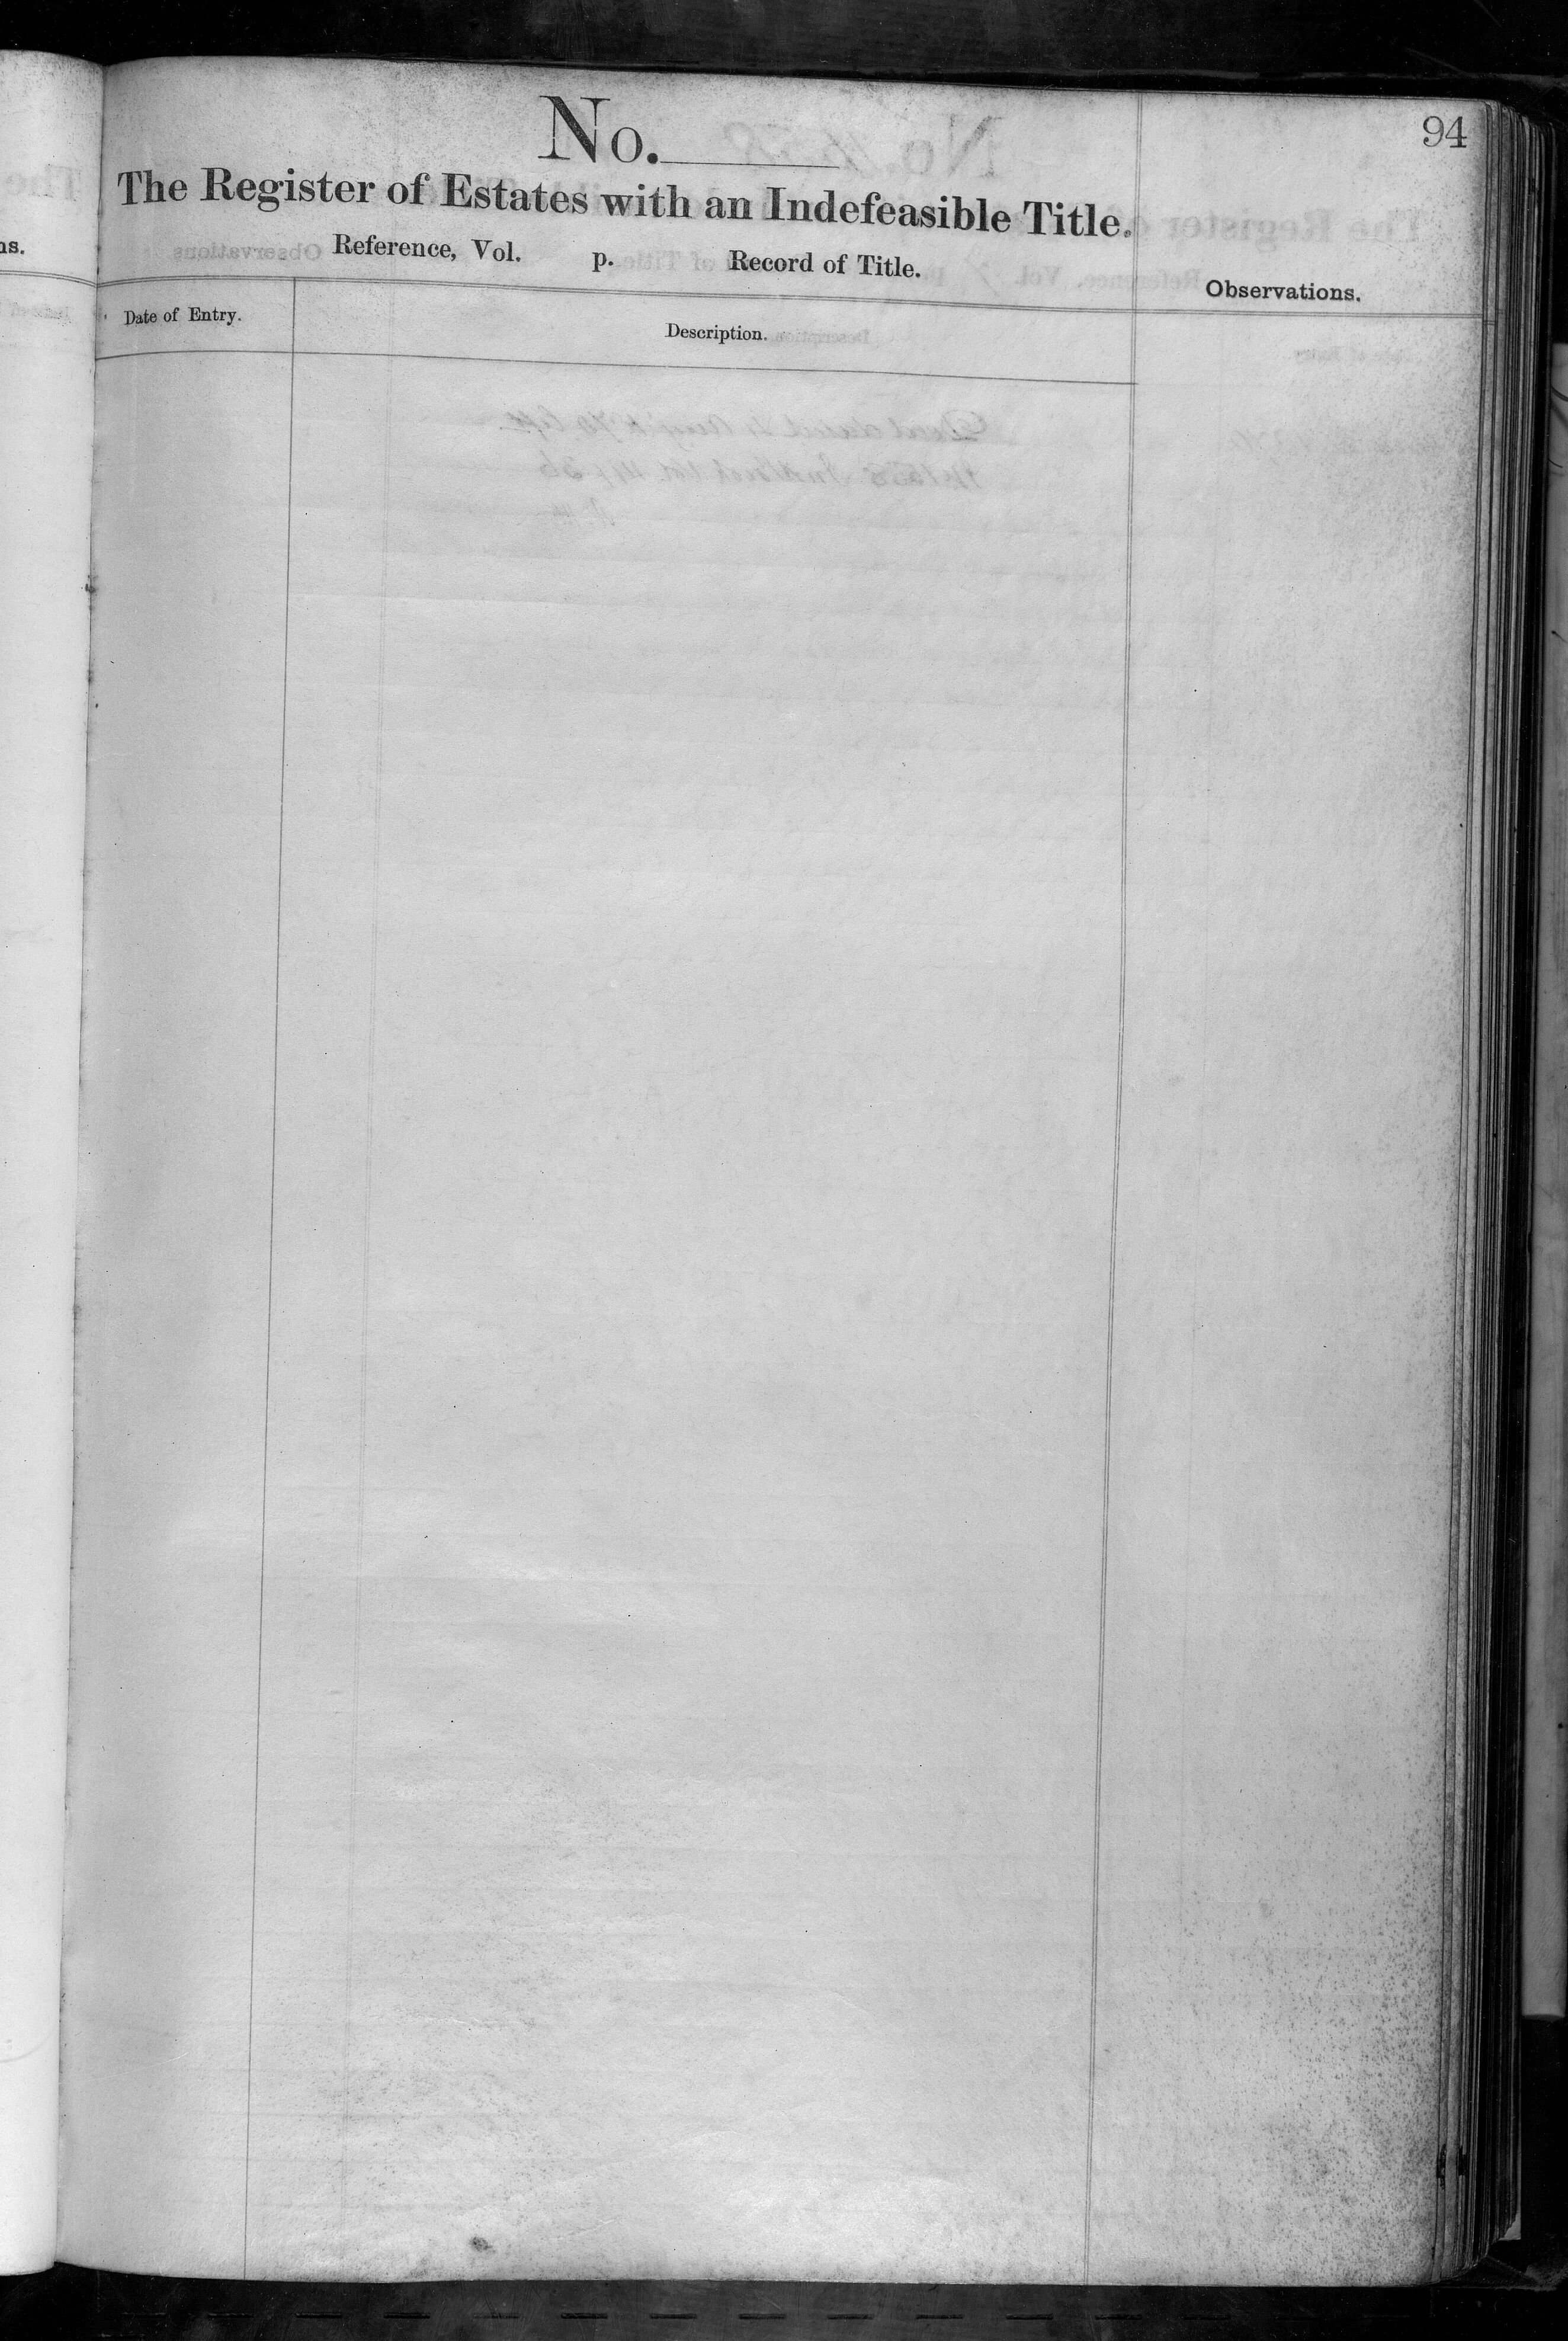 94
No.
The Register of Estates with an Indefeasible Title.
Reference, Vol. p. Record of Title.
Observations.
Date of Entry.
Description.